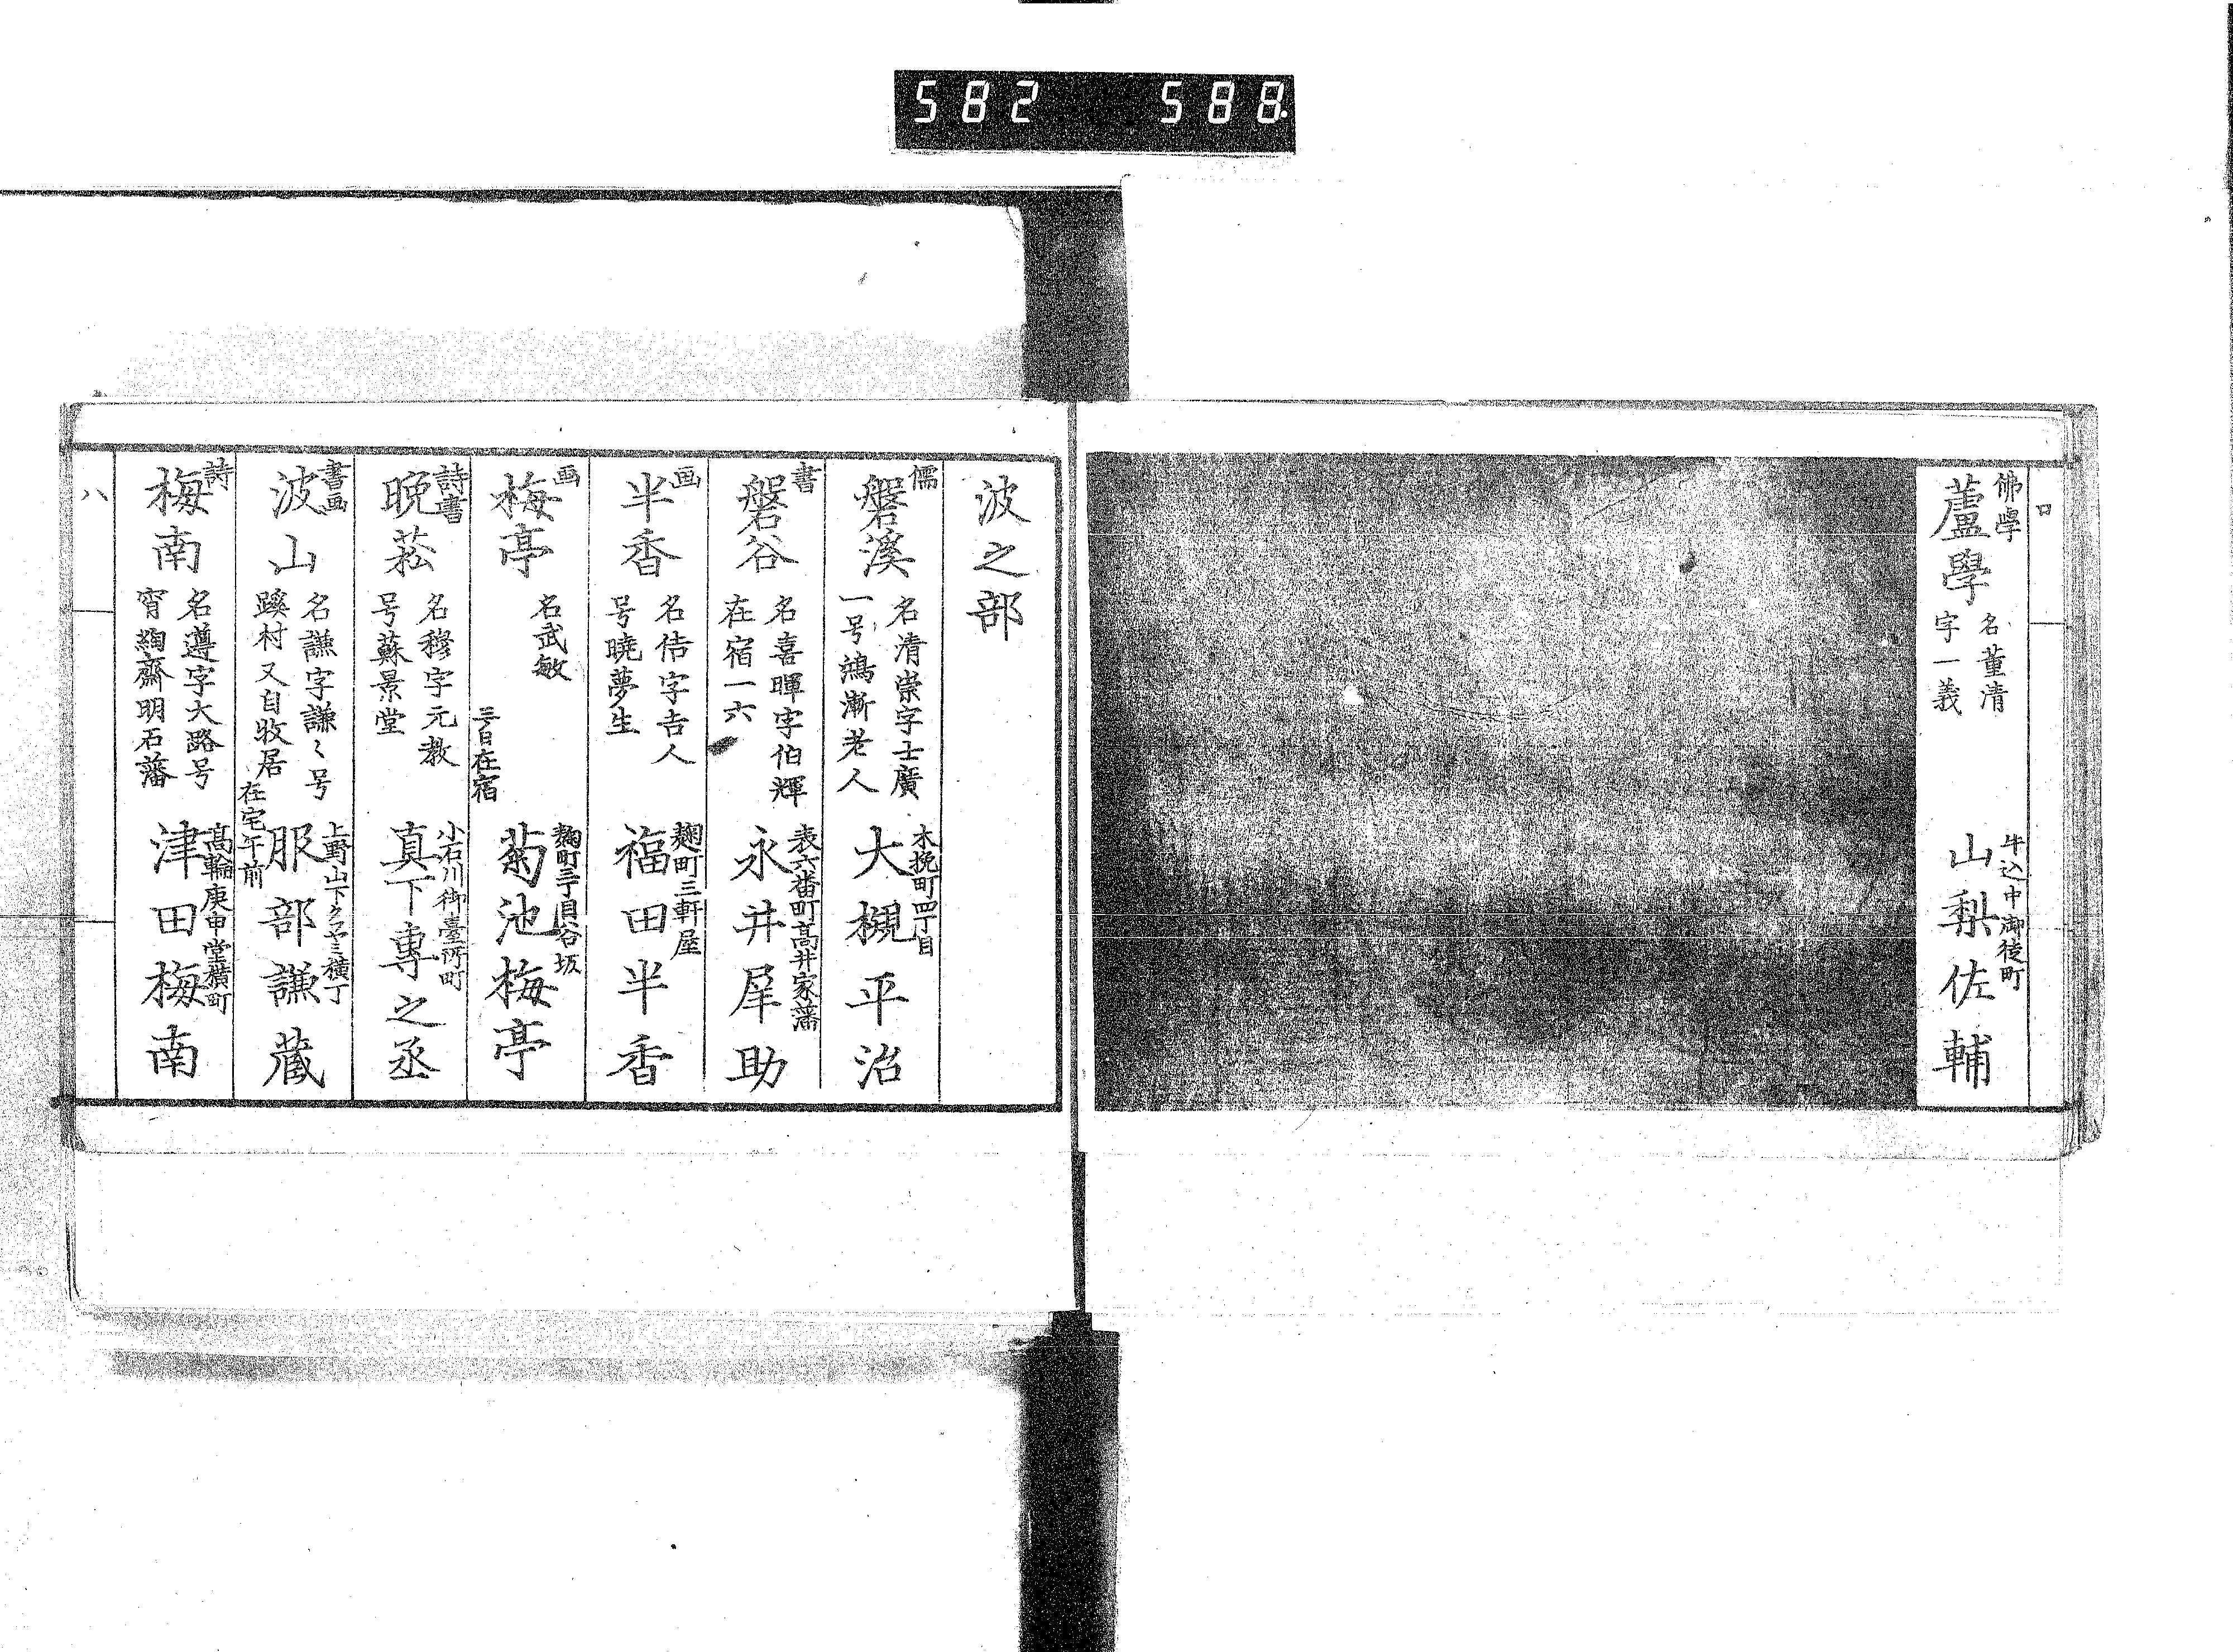 582 588
ロ
佛學
蘆學
名董清
字一義
牛込中御徒町
山梨佐輔
波之部
儒
磐溪
名清崇字士廣
一号鴻漸老人
木挽町四丁目
大槻平治
書
磐谷
名喜暉字伯輝
在宿一六
表六番町高井家藩
永井犀助
画
半香
名佶字吉人
号曉夢生
麹町三軒屋
福田半香
画
梅亭
名武敏
三日在宿
麹町三丁目谷坂
菊池梅亭
詩書
晩菘
名穆字元教
号蘇景堂
小石川御臺所町
真下専之丞
書画
波山
名謙字謙〻号
蹊村又自牧居
在宅午前
上野山下横丁
服部謙蔵
詩
梅南
名遵字大路号
甯鞠齋明石藩
高輪庚申堂横町
津田梅南
ハ